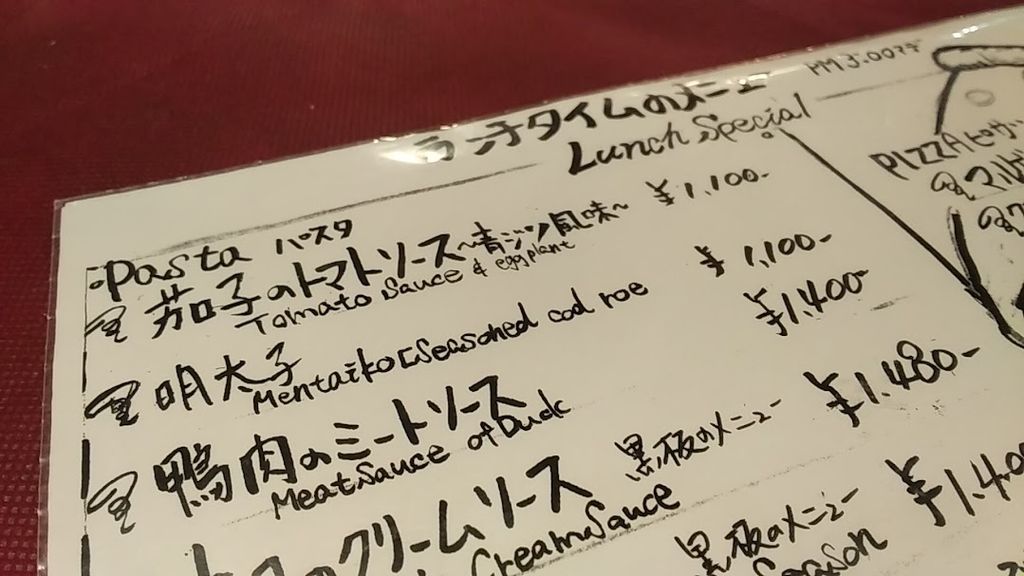 ランチタイムのメニュー PM3:00まで
Lunch Special
・Pasta パスタ
茄子のトマトソース〜青ジソ風味〜 ¥1.100-
Tomato Sauce & eggplant
明太子 ¥1,100-
Mentaiko [Seasoned cod roe
鴨肉のミートソース ¥1.400-
Meat Sauce of Duck
のクリームソース 黒板のメニュー ¥1.480-
Cream Sauce
黒板のメニュー ¥1.40
Season
PIZZA ピザ
マルゲ